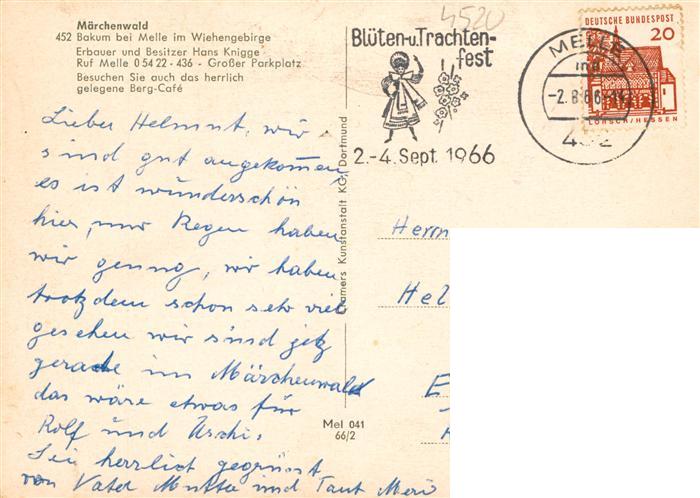 4520
Märchenwald
452 Bakum bei Melle im Wiehengebirge
Erbauer und Besitzer Hans Knigge
Ruf Melle 0 54 22 - 436 - Großer Parkplatz
Besuchen Sie auch das herrlich
gelegene Berg-Café
Blüten-u.Trachten-
fest
2.-4. Sept. 1966
MELLE
-2.8.66
DEUTSCHE BUNDESPOST
20
LORSCH/HESSEN
Lieber Helmut, wir
sind gut angekommen,
es ist wunderschön
hier, nur Regen haben
wir genug, wir haben
trotzdem schon sehr viel
gesehen wir sind jetz
gerade im Märchenwald
das wäre etwas für
Rolf und Uschi.
Sei herzlich gegrüsst
von Vater Mutter und Tant
Cramers Kunstanstalt KG, Dortmund
Mel 041
66/2
Herrn
Hel
E